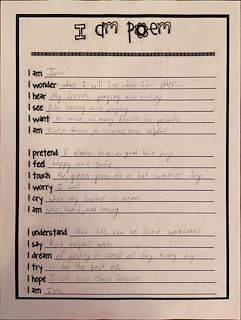 I am poem
I am
I wonder where I will live when I'm older.
I hear My friends playing and
I see Kids learning and playing
I want to make as many friends as possible
I am a dancer a and helpful
I pretend I always have a good hair day.
I feel happy and safe
I touch the green grass on a hot summer day
I worry I will
I cry when my brother is mean
I am nice, loved, and loving
I understand that life can be hard sometimes
I say Kind helpful words
I dream of getting to sleep all day every day
I try to be the best me
I hope I will have forever
I am